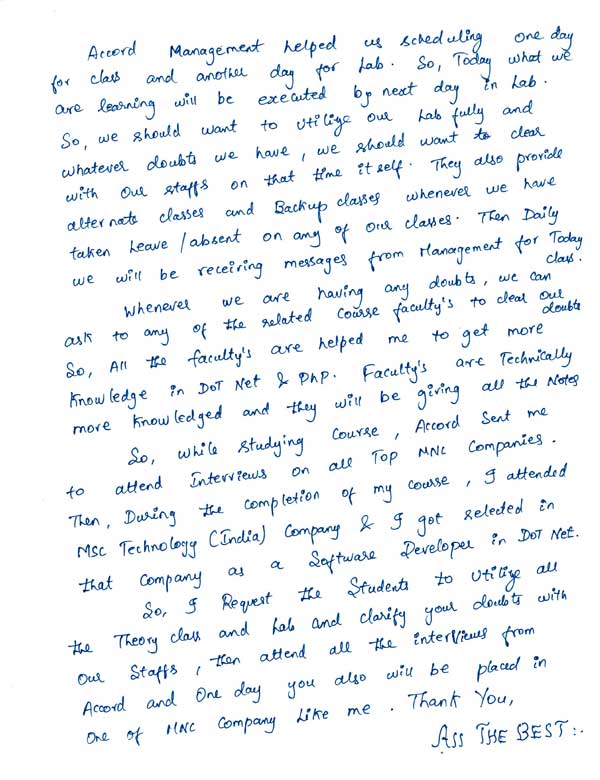 Accord Management helped us scheduling one day
for class and another day for Lab. So, Today what we
are learning will be executed by next day in Lab.
So, we should want to utilize our Lab fully and
whatever doubts we have, we should want to clear
with our staffs on that time itself. They also provide
alternate classes and Backup classes whenever we have
taken Leave /absent on any of our classes. Then Daily
we will be receiving messages from Management for Today
class.
Whenever we are having any doubts, we can
ask to any of the related course faculty's to clear our
doubts
So, All the faculty's are helped me to get more
Knowledge in DOT Net & PhP. Faculty's are Technically
more Knowledged and they will be giving all the Notes
So, while studying course, Accord Sent me
to attend Interviews on all Top MNC Companies.
Then, During the completion of my course, I attended
MSC Technology (India) Company & I got selected in
that company as a Software Developer in DOT Net.
So, I Request the Students to Utilize all
the Theory class and Lab and clarify your doubts with
Our Staffs, then attend all the interviews from
Accord and One day you also will be placed in
One of MNC Company Like me. Thank You,
All THE BEST:.